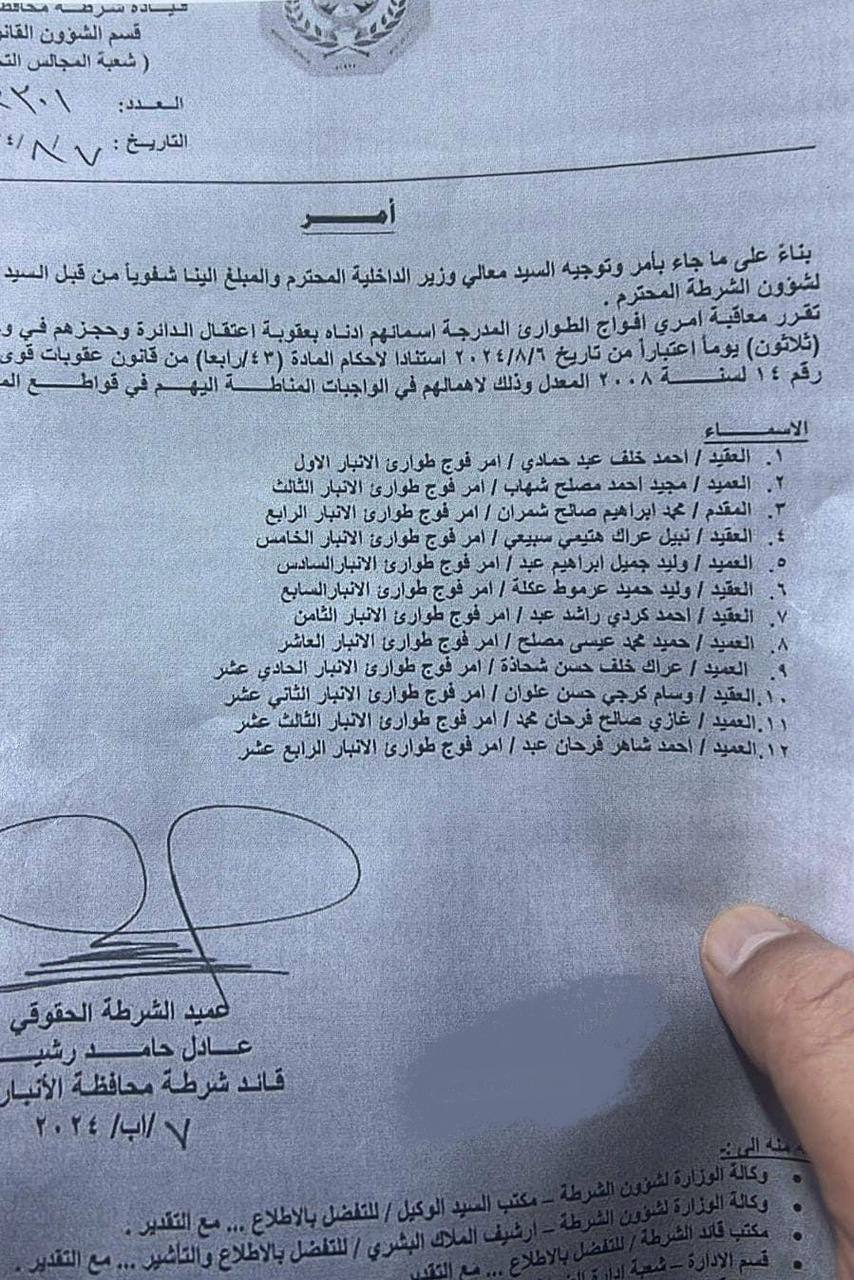 قيادة شرطة محافظ
قسم الشؤون القانو
( شعبة المجالس التح
العـدد: ٢٣٠١
التاريخ : ٧/٨/
أمـــر
بناءً على ما جاء بأمر وتوجيه السيد معالي وزير الداخلية المحترم والمبلغ الينا شفوياً من قبل السيد
لشؤون الشرطة المحترم .
تقرر معاقبة امري افواج الطوارئ المدرجة اسمائهم ادناه بعقوبة اعتقال الدائرة وحجزهم في
(ثلاثون) يوماً اعتباراً من تاريخ ٢٠٢٤/٨/٦ استنادا لاحكام المادة (٤٣/رابعا) من قانون عقوبات قوى
رقم ١٤ لسنـــة ٢٠٠٨ المعدل وذلك لاهمالهم في الواجبات المناطـة اليهـم في قواطـع
الاسمـــاء
١. العقيد / احمد خلف عبد حمادي / امر فوج طوارئ الانبار الاول
٢. العميد / مجيد احمد مصلح شهاب / امر فوج طوارئ الانبار الثالث
٣. المقدم / محمد ابراهيم صالح شمران / امر فوج طوارئ الانبار الرابع
٤. العقيد / نبيل عراك هتيمي سبيعي / امر فوج طوارئ الانبار الخامس
٥. العميد / وليد جميل ابراهيم عبد / امر فوج طوارئ الانبارالسادس
٦. العقيد / وليد حميد عرموط عكلة / امر فوج طوارئ الانبارالسابع
٧. العقيد / احمد كردي راشد عبد / امر فوج طوارئ الانبار الثامن
٨. العميد / حميد محمد عيسى مصلح / امر فوج طوارئ الانبار العاشر
٩. العميد / عراك خلف حسن شحاذة / امر فوج طوارئ الانبار الحادي عشر
١٠.العقيد / وسام كرجي حسن علوان / امر فوج طوارئ الانبار الثاني عشر
١١.العميد / غازي صالح فرحان محمد / امر فوج طوارئ الانبار الثالث عشر
١٢.العميد / احمد شاهر فرحان عبد / امر فوج طوارئ الانبار الرابع عشر
عميد الشرطة الحقوقي
عـادل حامـــد رشيـ
قائد شرطة محافظة الأنبار
٧ /اب/ ٢٠٢٤
ـه منه الى :-
• وكالة الوزارة لشؤون الشرطة – مكتب السيد الوكيل / للتفضل بالاطلاع ... مع التقدير .
• وكالة الوزارة لشؤون الشرطة – ارشيف الملاك البشري / للتفضل بالاطلاع والتأشير ... مع التقدير .
• مكتب قائد الشرطة / للتفضل بالاطلاع ... مع التقدير
• قسم الادارة – شعبة إدارة